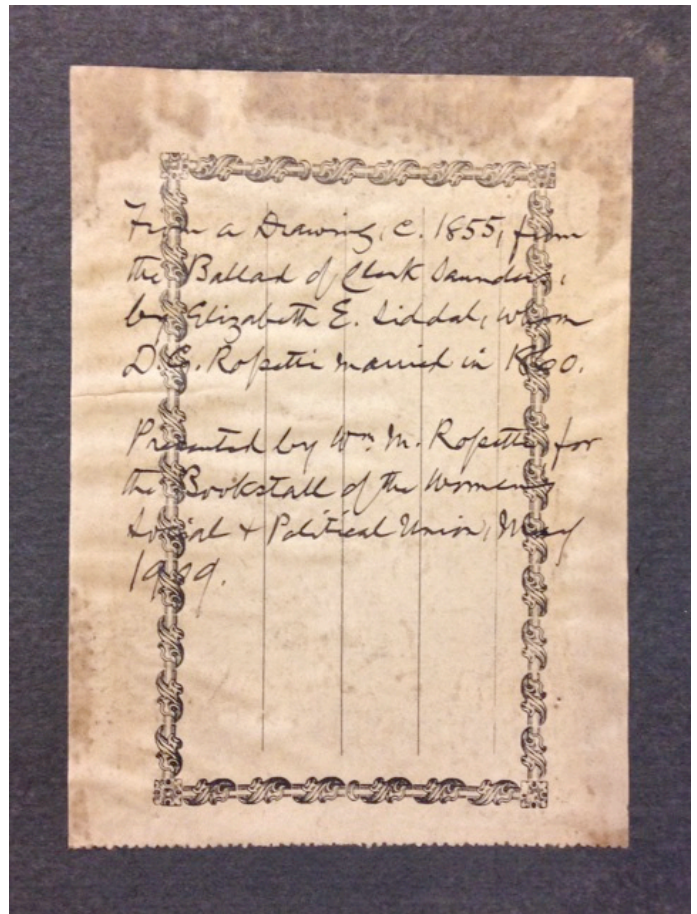 From a Drawing, c. 1855, from
the Ballad of Clerk Saunders,
by Elizabeth E. Siddal, whom
D. G. Rossetti married in 1860.
Presented by Wm. M. Rossetti for
the Bookstall of the Women's
Social + Political Union, May
1909.